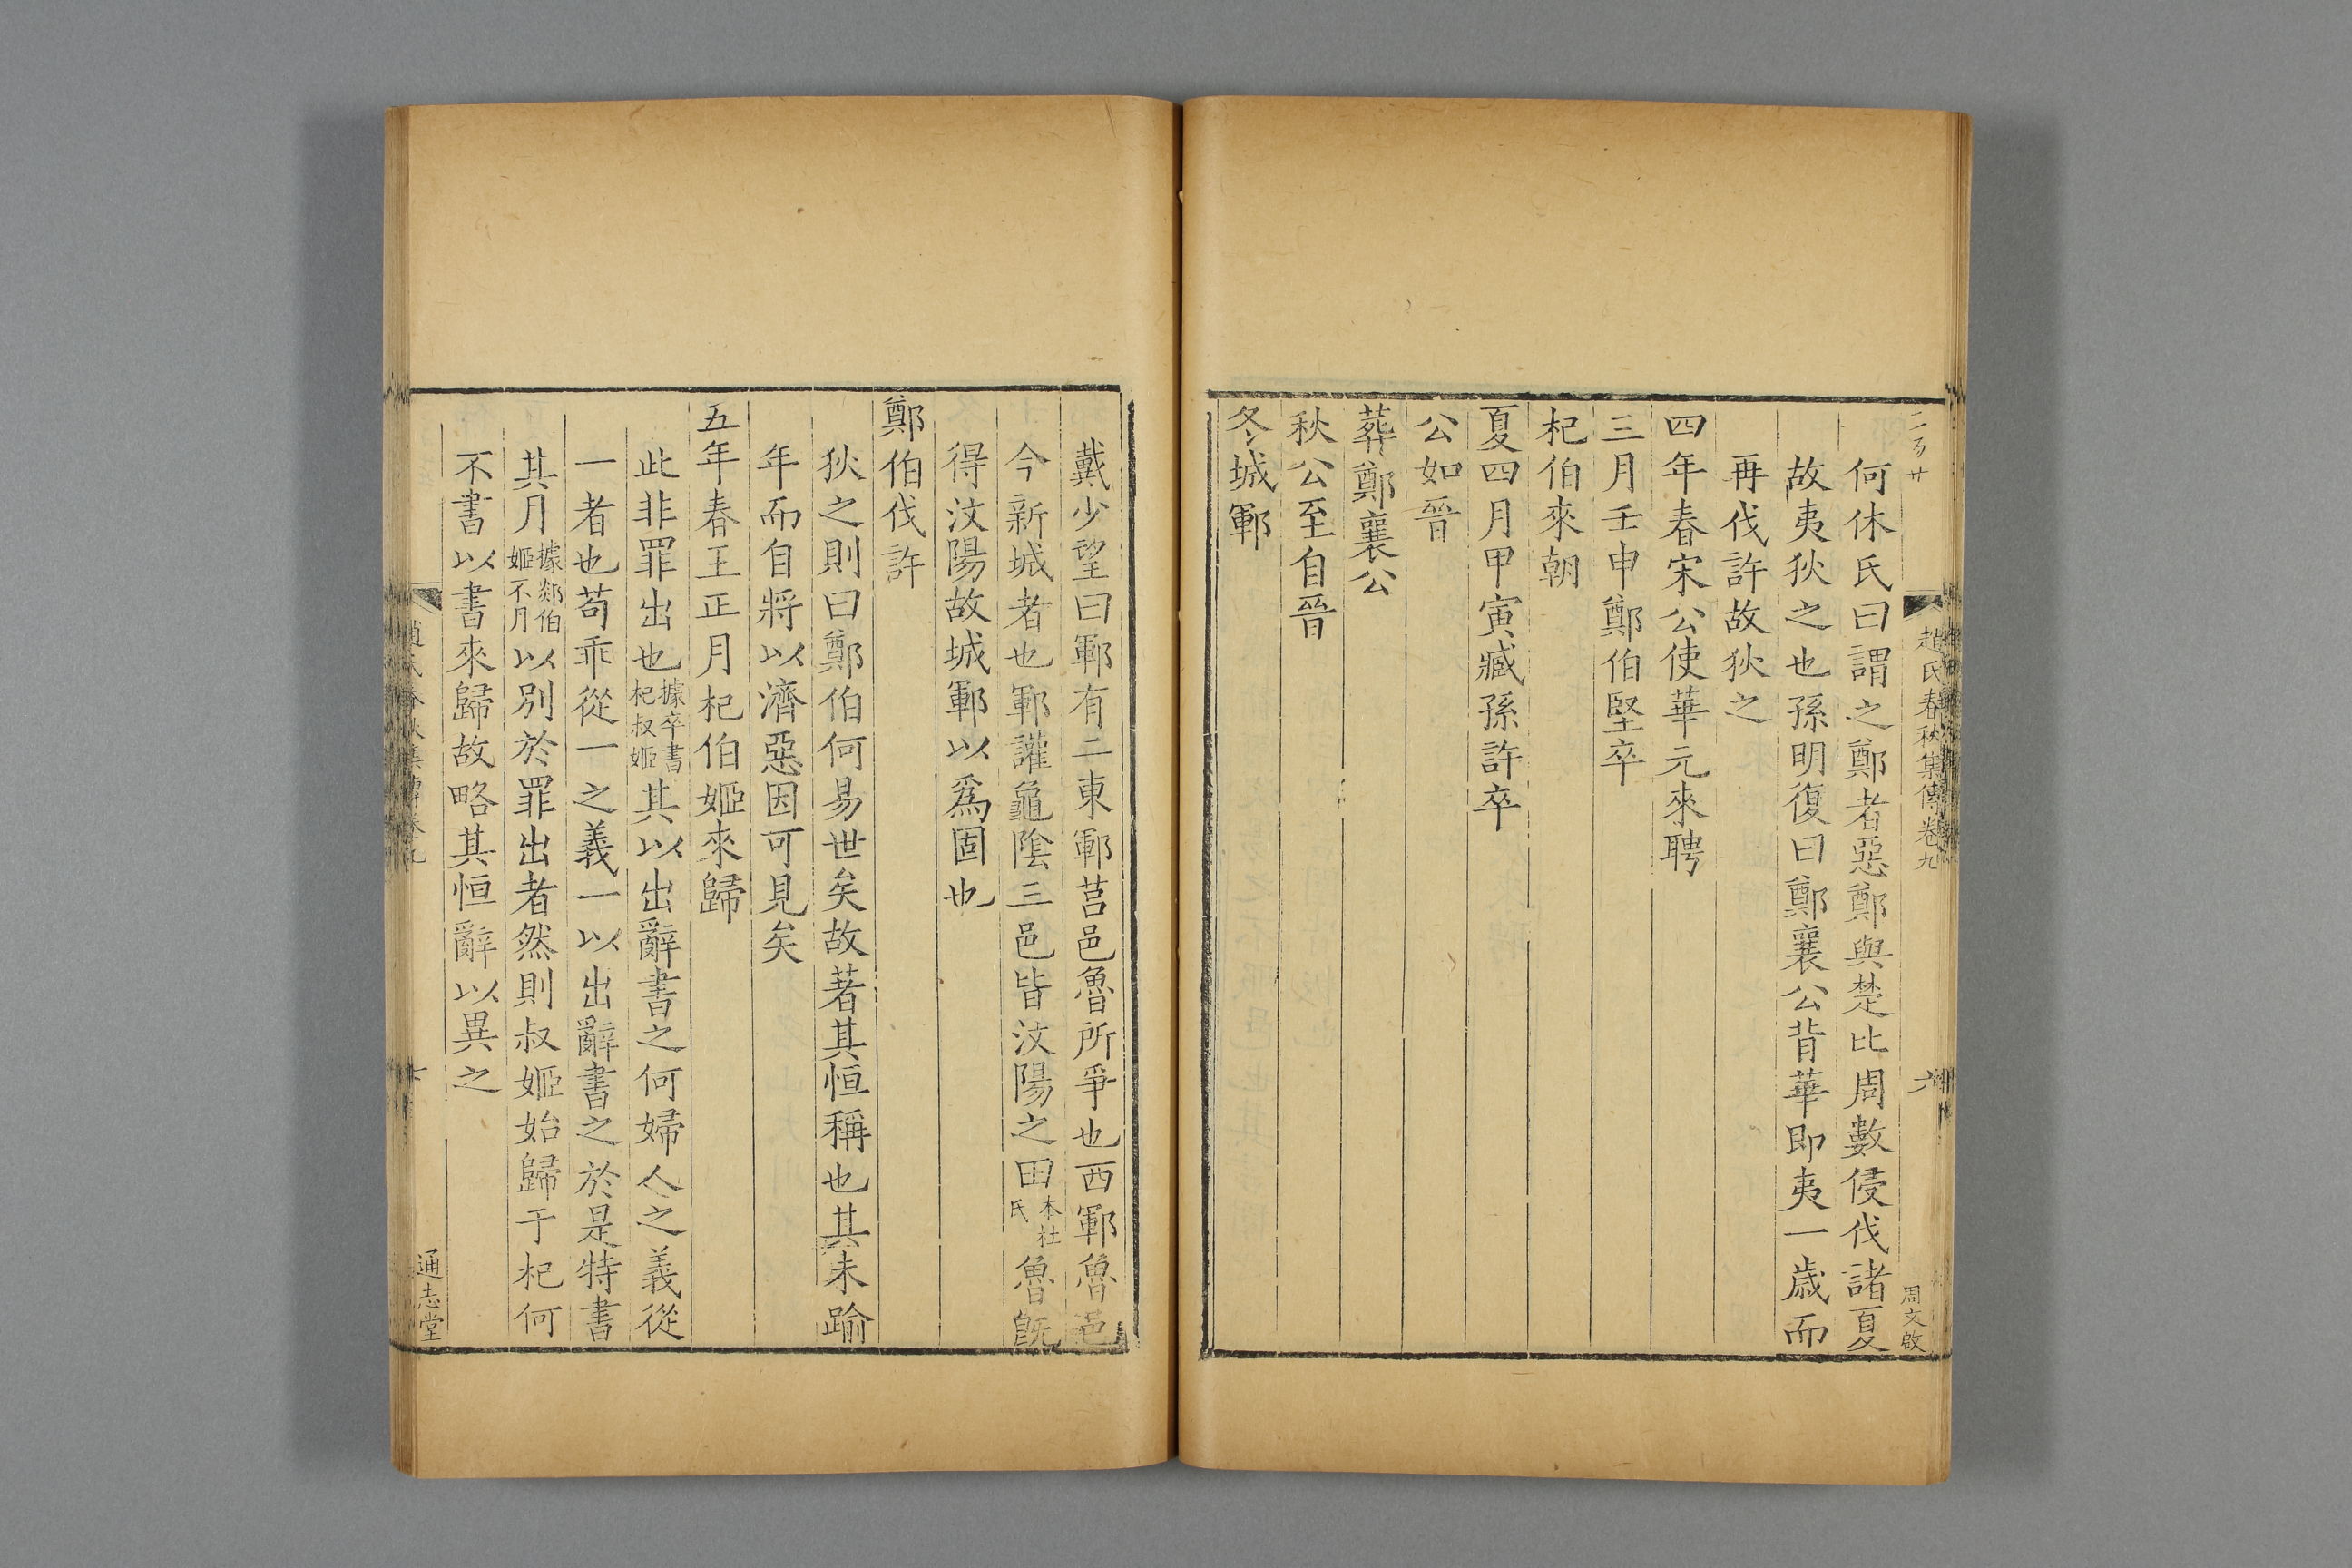 二〢廿
趙氏春秋集傳卷九
六
周文啟
何休氏曰謂之鄭者惡鄭與楚比周數侵伐諸夏
故夷狄之也孫明復曰鄭襄公背華即夷一歲而
再伐許故狄之
四年春宋公使華元來聘
三月壬申鄭伯堅卒
杞伯來朝
夏四月甲寅臧孫許卒
公如晉
葬鄭襄公
秋公至自晉
冬城鄆
戴少望曰鄆有二東鄆莒邑魯所爭也西鄆魯邑
今新城者也鄆讙龜陰三邑皆汶陽之田本杜氏魯旣
得汶陽故城鄆以爲固也
鄭伯伐許
狄之則曰鄭伯何易世矣故著其恒稱也其未踰
年而自將以濟惡因可見矣
五年春王正月杞伯姬來歸
此非罪出也據卒書杞叔姬其以出辭書之何婦人之義從
一者也苟乖從一之義一以出辭書之於是特書
其月據郯伯姬不月以別於罪出者然則叔姬始歸于杞何
不書以書來歸故略其恒辭以異之
趙氏春秋集傳卷九
七
通志堂